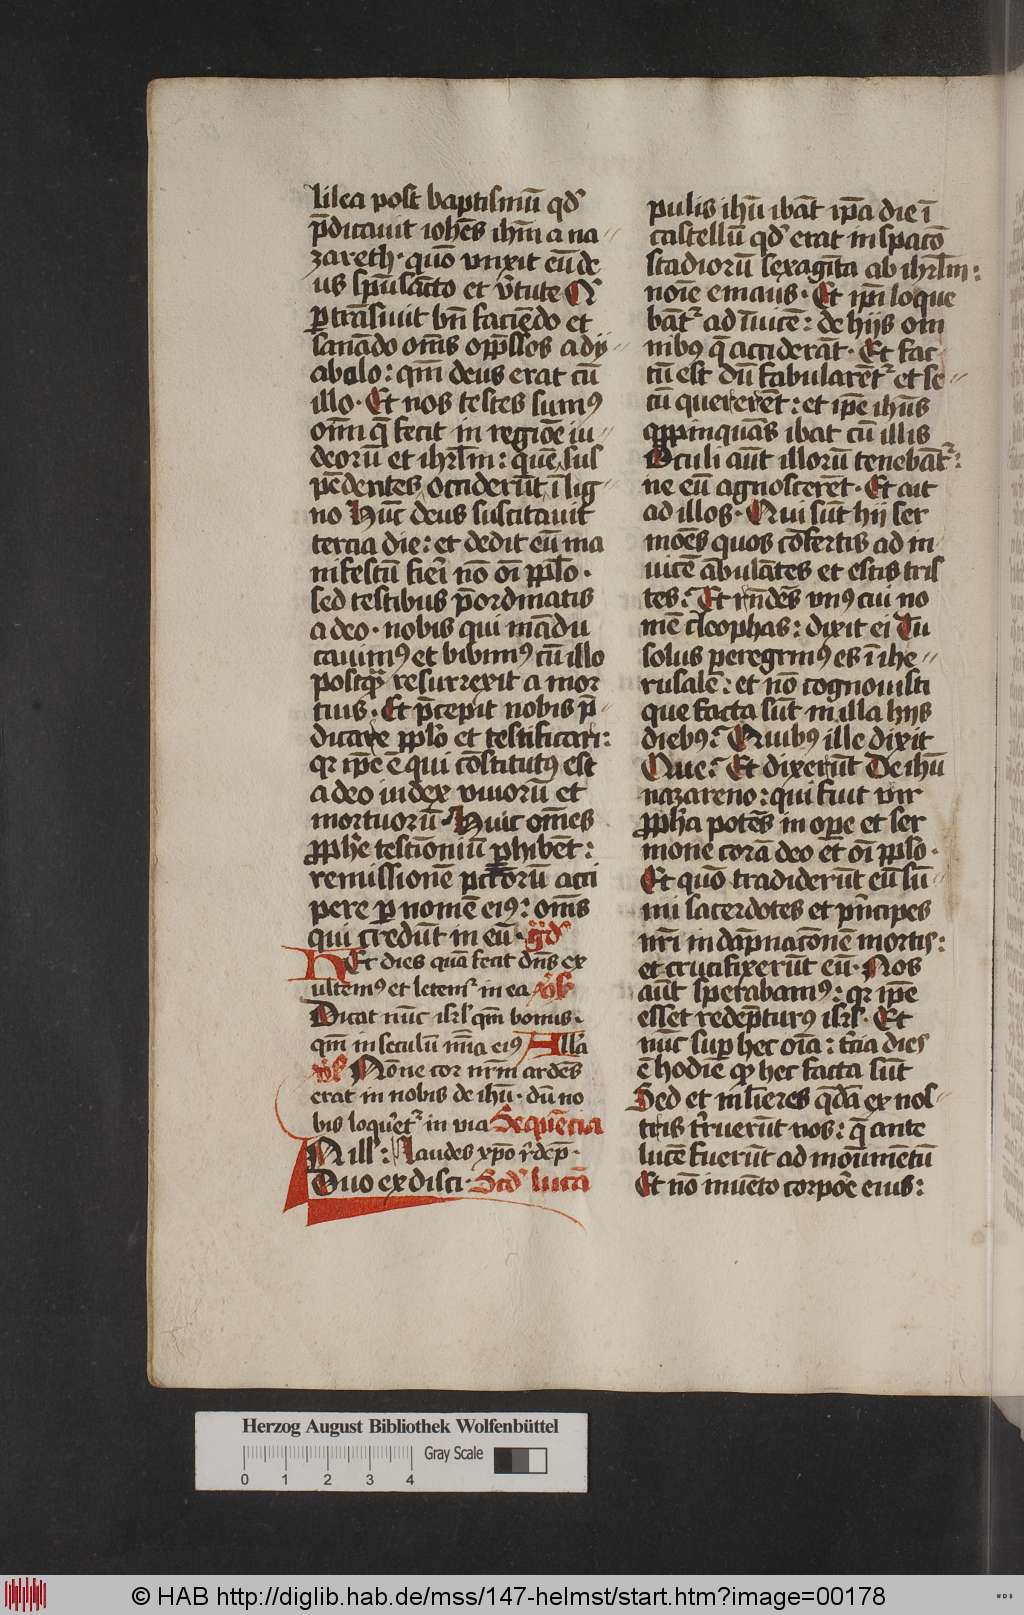 lilea post baptismū qd̄
p̄dicauit ioh̄es ih̄m a na〃
zareth · quō vnxit eū de
us sp̄u sācto et v̄tute Q
ꝑtrāsiuit bn̄ faciēdo et
sanādo om̄s opp̄ssos a dy〃
abolo : qm̄ deus erat cū
illo · Et nos testes sumꝰ
om̄i q̄ fecit in regiōe iu〃
deorū et ihrl̄m : quē sus
pēdentes occiderūt ī lig〃
no Hūc deus suscitauit
tercia die : et dedit eū ma
nifestū fieī nō oī ppl̄o ·
sed testibus p̄ordinatis
a deo · nobis qui mādu
cauimꝰ et bibimꝰ cū illo
postq̄ resurrexit a mor
tuis · Et p̄cepit nobis p̄〃
dicare ppl̄o et testificari :
qr ip̄e ē qui cōstitutꝰ est
a deo iudex viuorū et
mortuorū · Huic om̄es
ꝓph̄e testīoniū ꝑhibēt :
remissionē pctōrū acci
pere ꝑ nomē eiꝰ : om̄s
qui credūt in eū · gͬd̄
Hec dies quā fecit dn̄s ex
ultemꝰ et letemͬ in ea v̄s
Dicat nūc isrl̄ qm̄ bonus ·
qm̄ in seculū mīa eiꝰ All̄a
v̄s Nōne cor nr̄m ardēs
erat in nobis de ih̄u · dū no
bis loq̄retͬ in via Sequēcia
Nill̄ : Laudes xp̄o r̄dep̄ ·
Duo ex disci · Scd̄ lucā
pulis ih̄u ibāt ip̄a die ī
castellū qd̄ erat in spacō
stadiorū sexagīta ab ihrl̄m :
noīe emaus · Et ip̄i loque
bātͬ ad īuicē : de hijs om
nibꝰ q̄ acciderāt · Et fac〃
tū est dū fabularētͬ et se〃
cū quererēt : et ip̄e ih̄us
ꝓpinquās ibat cū illis
Oculi aūt illorū tenebātͬ :
ne eū agnoscerēt · Et ait
ad illos · Qui sūt hij ser
mōes quos cōfertis ad in
uicē ābulātes et estis tris
tes : Et rn̄dēs vnꝰ cui no
mē cleophas : dixit ei Tu
solus peregrinꝰ es ī ihe〃
rusalē : et nō cognouisti
que facta sūt in illa hijs
diebꝰ : Quibꝰ ille dixit
Que : Et dixerūt De ih̄u
nazareno : qui fuit vir
ꝓph̄a potēs in oꝑe et ser
mone corā deo et oī ppl̄o ·
Et quō tradiderūt eū sū〃
mi sacerdotes et p̄ncipes
nr̄i in dāpnacōnē mortis :
et crucifixerūt eū · Nos
aūt sperabamꝰ : qr ip̄e
esset redēpturꝰ isrl̄ · Et
nūc suꝑ hec oīa : t̄cia dies
ē hodie q̄ hec facta sūt
Sed et ml̄ieres q̄dā ex nos〃
tris t̄ruerūt nos : q̄ ante
lucē fuerūt ad monumētū
Et nō inuēto corpōe eius :
Herzog August Bibliothek Wolfenbüttel
Gray Scale
0 1 2 3 4
© HAB http://diglib.hab.de/mss/147-helmst/start.htm?image=00178